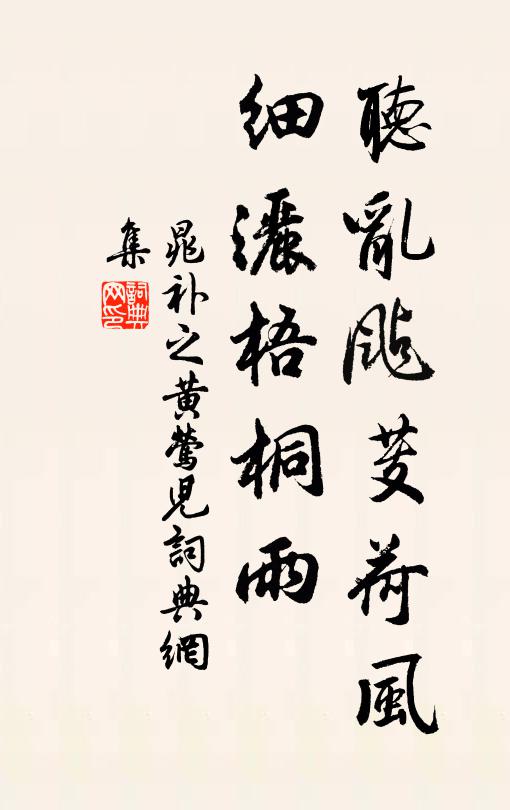 聽亂颭芰荷風
細灑梧桐雨
晁補之黃鶯兒詞典網
集
詞典網印